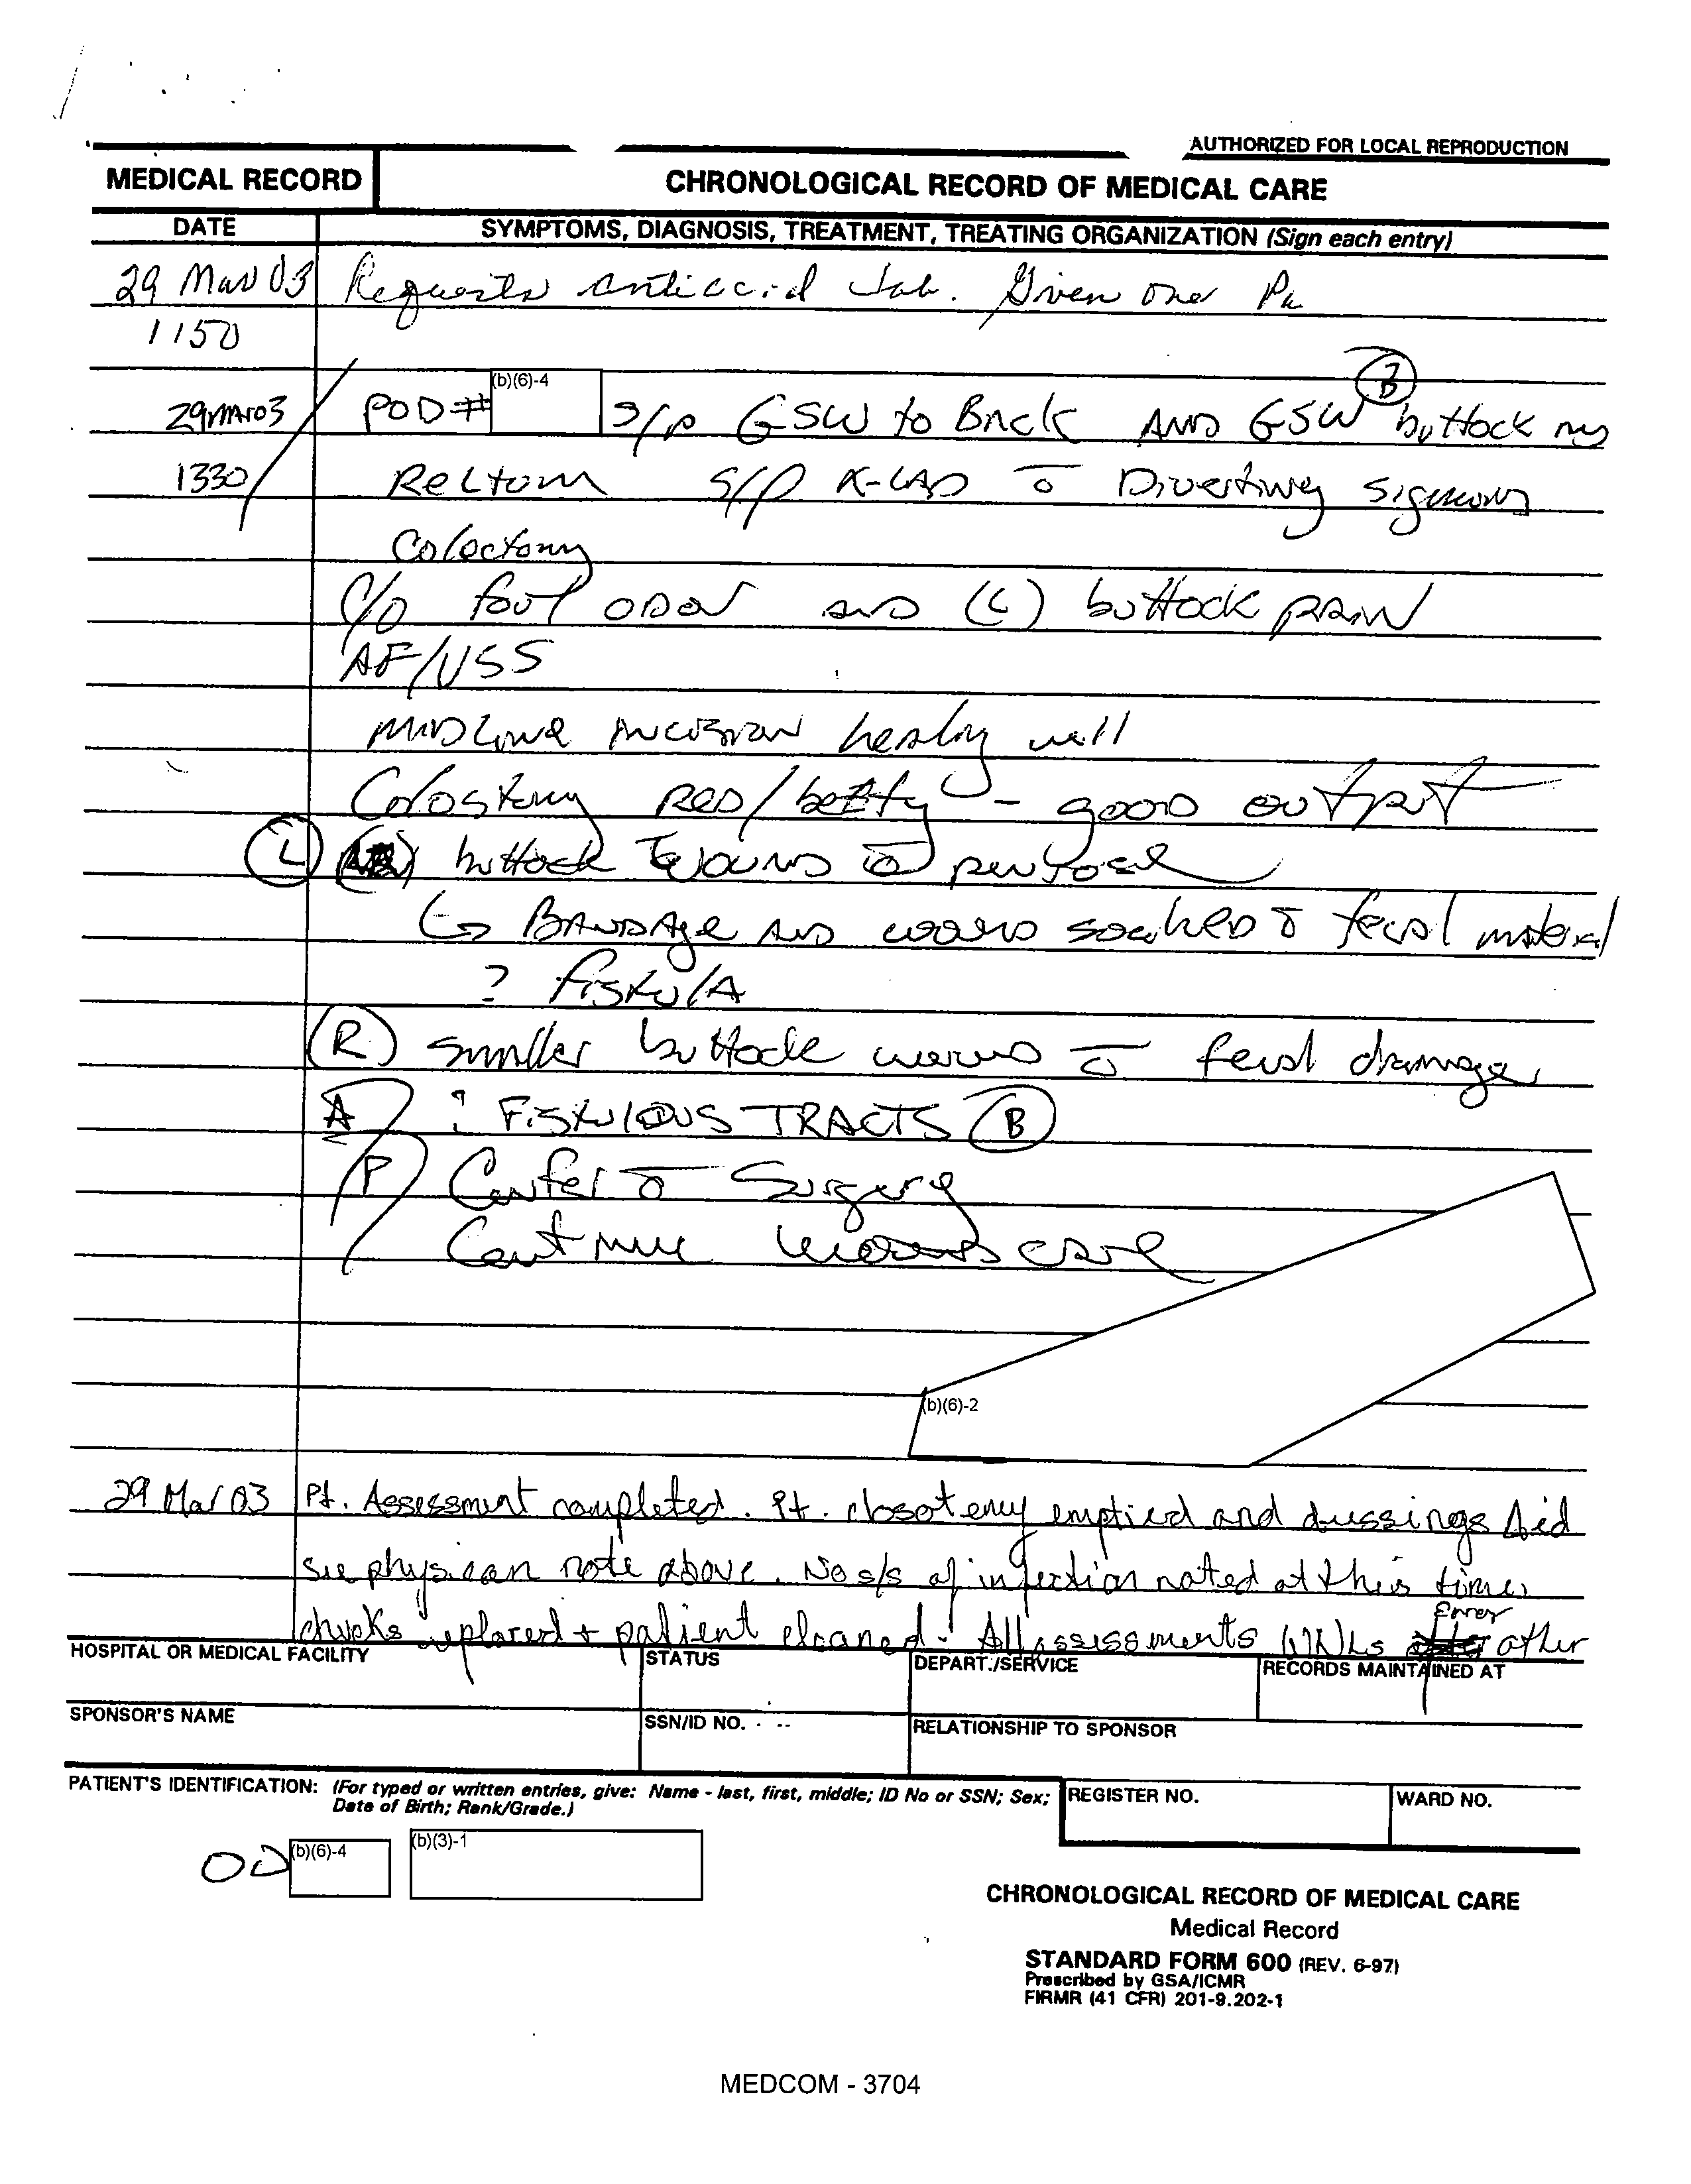 AUTHORIZED FOR LOCAL REPRODUCTION
MEDICAL RECORD
CHRONOLOGICAL RECORD OF MEDICAL CARE
DATE
SYMPTOMS, DIAGNOSIS, TREATMENT, TREATING ORGANIZATION (Sign each entry)
29 Mar 03 Requests antiacid tab. Given one
1150
29 Mar 03 POD# (b)(6)-4 s/p GSW to Back AND GSW (B) buttock
1330 Rectum s/p X-LAP c̄ Diverting sigmoid
Colectomy
C/O foul odor AND (L) buttock pain
AF/VSS
MIDLINE INCISION healing well
Colostomy RED/beefy - good output
(L) buttock wound c̄
↳ BANDAGE AND wound soaked c̄ fecal material
? fistulA
(R) smaller buttock wound c̄ fecal drainage
A ? FISTULOUS TRACTS (B)
P Confer c̄ Surgery
Continue wound care
(b)(6)-2
29 Mar 03 Pt. Assessment completed. Pt. closotemy emptied and dressings
see physican note above. No s/s of infection noted at this time,
chucks replaced + patient cleaned. All assessments WNLs Error other
HOSPITAL OR MEDICAL FACILITY
STATUS
DEPART./SERVICE
RECORDS MAINTAINED AT
SPONSOR'S NAME
SSN/ID NO.
RELATIONSHIP TO SPONSOR
PATIENT'S IDENTIFICATION: (For typed or written entries, give: Name - last, first, middle; ID No or SSN; Sex;
Date of Birth; Rank/Grade.)
REGISTER NO.
WARD NO.
(b)(6)-4
(b)(3)-1
CHRONOLOGICAL RECORD OF MEDICAL CARE
Medical Record
STANDARD FORM 600 (REV. 6-97)
Prescribed by GSA/ICMR
FIRMR (41 CFR) 201-9.202-1
MEDCOM - 3704